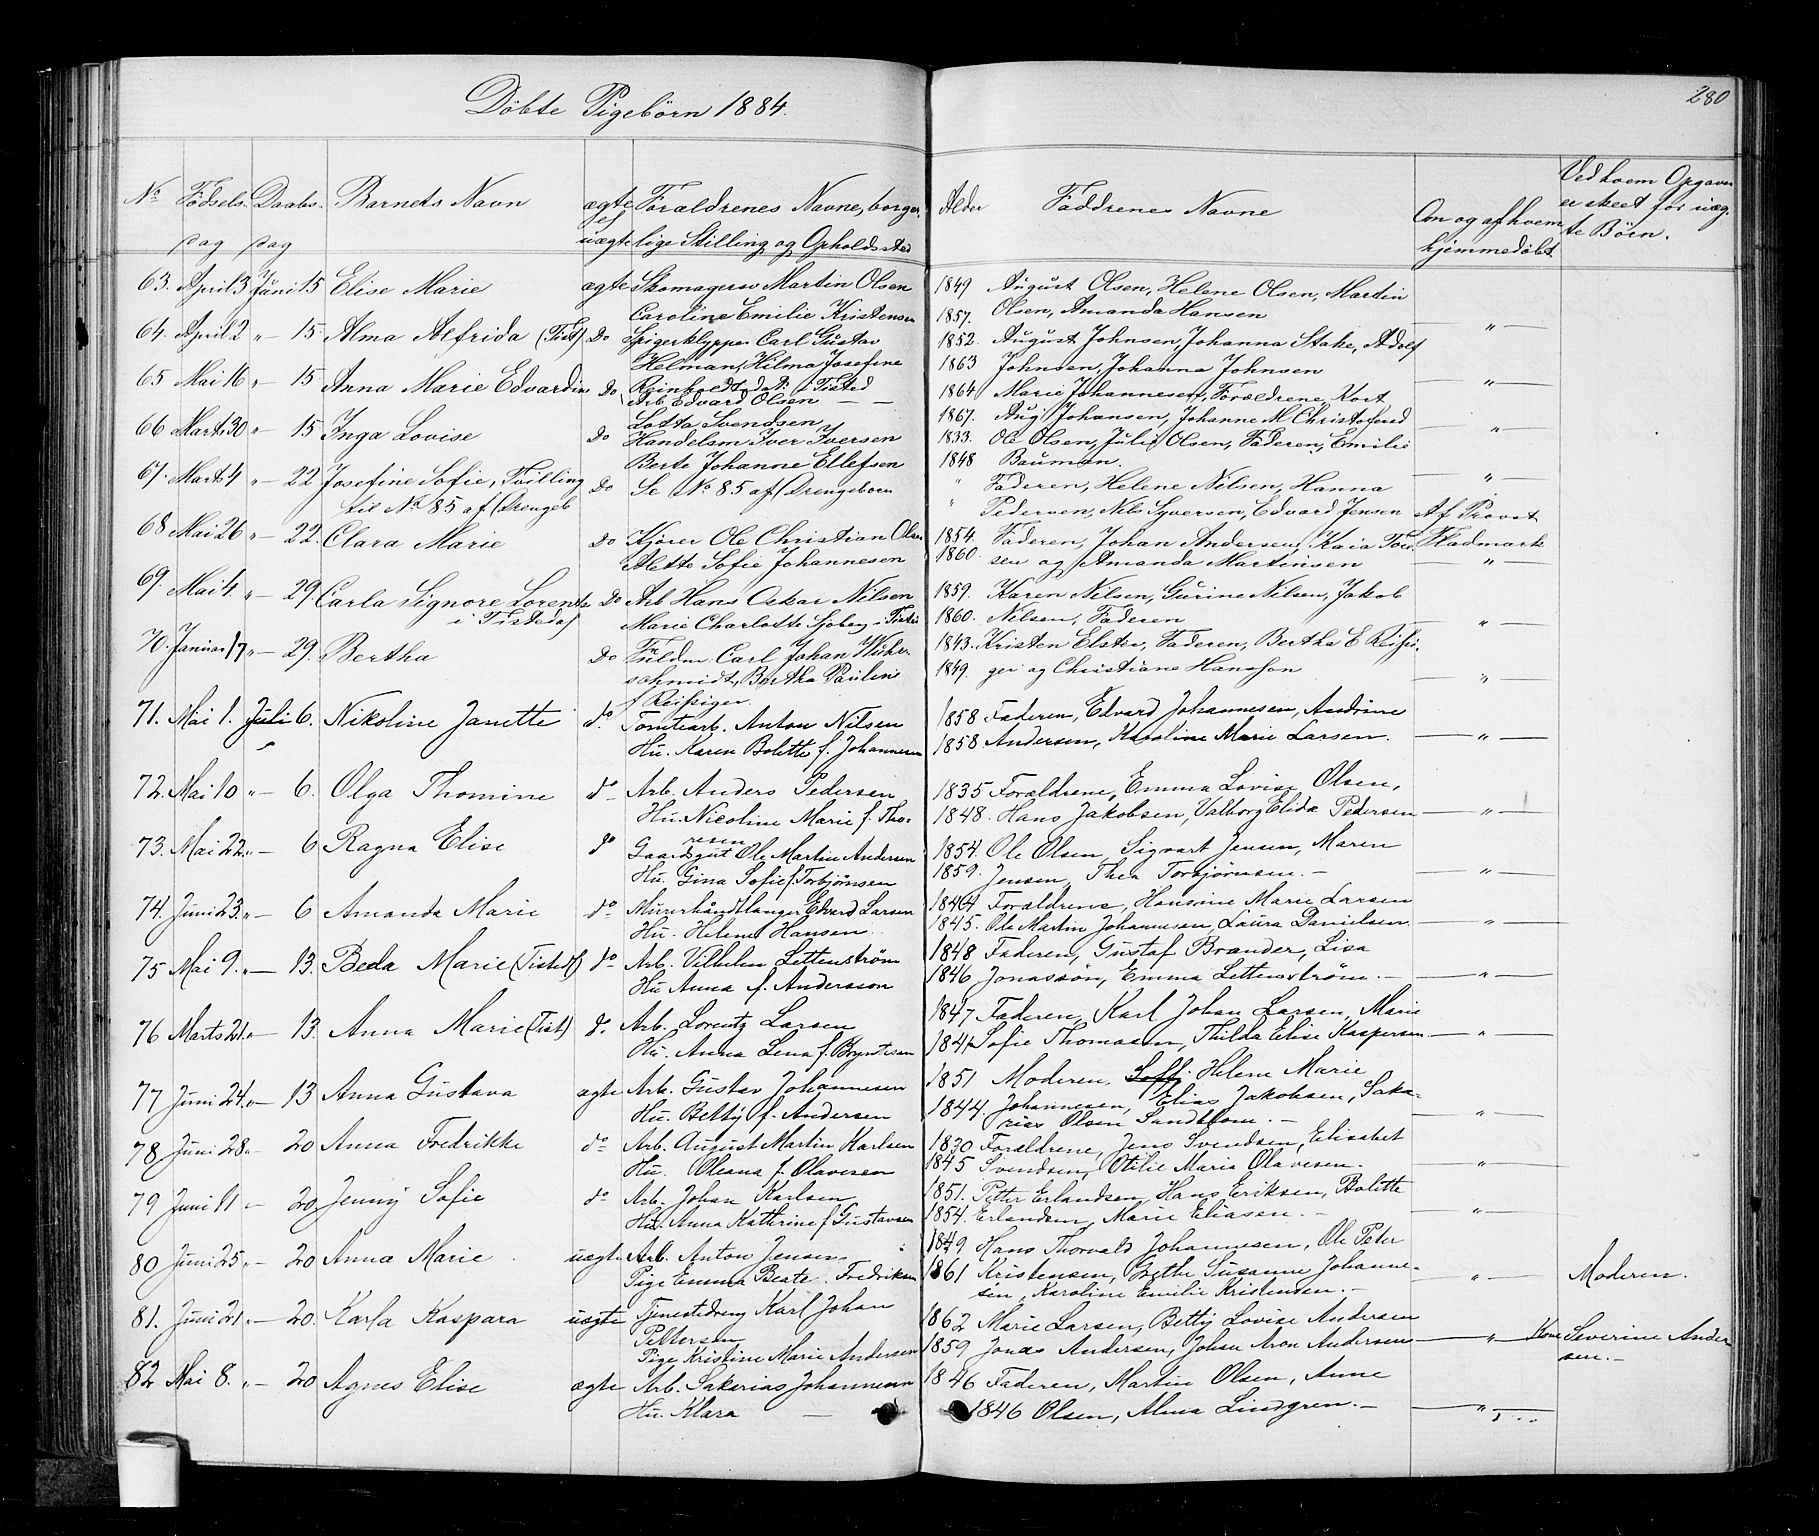 Döbte Pigebörn 1884.
280
No Födsels- dag Daabs- dag Barnets Navn ægte el uægte Forældrenes Navne, borger- lige Stilling og Opholdssted Alder Faddrenes Navne Om og af hvem hjemmedöbt Ved hvem Opgaven er skeet for uæg- te Börn.
63. April 3 Juni 15 Elise Marie ægte Skomagersv Martin Olsen 1849 August Olsen, Helene Olsen, Martin
Caroline Emilie Kristensen 1857. Olsen, Amanda Hansen
64. April 2 " 15. Alma Alfrida (Tist) Do Spigerklypper Carl Gustav 1852. August Johnsen, Johanna Stake, Adolf
Helman, Hilma Josefine 1863 Johnsen, Johanna Johnsen
Reinholdtsdat. i Tisted
65 Mai 16 " 15 Anna Marie Edvardine Do Arb Edvard Olsen 1864 Marie Johannesen, Forældrene, Kort
Lotta Svendsen 1867. Aug Johansen, Johanne M Christofersd
66 Marts 30 " 15 Inga Lovise Do Handelsm Iver Iversen 1833. Ole Olsen, Julie Olsen, Faderen, Emilie
Berte Johanne Ellefsen 1848 Bauman.
67. Marts 4 " 22 Josefine Sofie, Tvilling Do Se No 85 af Drengebörn " Faderen, Helene Nilsen, Hanna
til No 85 af Drengeb " Pedersen, Nils Syversen, Edvard Jensen Af Provst
68 Mai 26 " 22. Clara Marie Do Kjörer Ole Christian Olsen 1854. Faderen, Johan Andersen, Kaia Tore Fladmark
Alette Sofie Johannesen 1860. sen og Amanda Martinsen
69. Mai 4 " 29. Carla Signore Lorentse Do Arb Hans Oskar Nilsen 1859. Karen Nilsen, Gurine Nilsen, Jakob
i Tistedal Marie Charlotte Sjöberg - Tisted 1860. Nilsen, Faderen
70. Januar 17 " 29. Bertha Do Fuldm. Carl Johan Wirk- 1843. Kristen Elster, Faderen, Bertha E Reissi-
schmidt, Bertha Pauline 1849. ger og Christiane Hansson
f Reissiger
71. Mai 1. Juli 6. Nikoline Janette do. Tomtearb. Anton Nilsen 1858 Faderen, Edvard Johannesen, Andrine
Hu. Karen Bolette f. Johannesen 1858. Andersen, Karoline Marie Larsen.
72. Mai 10 " 6. Olga Thomine do Arb. Anders Pedersen 1835 Forældrene, Emma Lovise Olsen,
Hu. Nicoline Marie f. Tho- 1848. Hans Jakobsen, Valborg Elida Pedersen
resen
73. Mai 22. " 6 Ragna Elise do Gaardsgut Ole Martin Andersen 1854. Ole Olsen, Sigvart Jensen, Maren
Hu. Gina Sofie f. Torbjörnsen 1859. Jensen, Thea Torbjörnsen.
74. Juni 23. " 6 Amanda Marie do Murerhåndtlanger Edvard Larsen 1844 Forældrene, Hansine Marie Larsen
Hu. Helene Hansen. 1845. Ole Martin Johannesen, Laura Danielsen.
75 Mai 9. " 13. Beda Marie (Tistedl) do Arb. Vilhelm Lettenström 1848 Faderen, Gustaf Brander, Lisa
Hu Anna f. Andersson 1846 Jonassön, Emma Lettenström.
76 Marts 21. " 13. Anna Marie (Tist) do. Arb. Lorentz Larsen 1847 Faderen, Karl Johan Larsen, Marie
Hu. Anna Lena f. Bryntesen 1841 Sofie Thomasen, Thilda Elise Kaspersen
77 Juni 24. " 13 Anna Gustava ægte Arb. Gustav Johannesen 1851 Moderen, Soff Helene Marie
Hu. Betty f. Andersen 1844. Johannesen, Elias Jakobsen, Saka-
rias Olsen Sandblom.
78 Juni 28. " 20 Anna Fredrikke do Arb. August Martin Karlsen 1830 Forældrene, Jens Svendsen, Elisabet
Hu. Oleana f. Olavesen 1845 Svendsen, Otilie Maria Olavesen.
79 Juni 11 " 20 Jenny Sofie do Arb. Johan Karlsen 1851. Petter Erlandsen, Hans Eriksen, Bolette
Hu. Anna Kathrine f. Gustavsen 1854. Erlandsen, Marie Eliasen.
80 Juni 25 " 20 Anna Marie uægte Arb. Anton Jensen 1849. Hans Thorvald Johannesen, Ole Peter
Pige Emma Beate Fredriksen 1861 Kristensen, Grethe Susanne Johanne- Moderen.
sen, Karoline Emilie Kristensen.
81. Juni 21. " 20. Karla Kaspara uægte Tjenestedreng Karl Johan 1862 Marie Larsen, Betty Lovise Andersen
Pettersen
Pige Kristine Marie Andersen 1859 Jonas Andersen, Johan Aron Andersen Kone Severine Ander
sen.
82 Mai 8. " 20 Agnes Elise ægte Arb. Sakarias Johannesen 1846 Faderen, Martin Olsen, Anne
Hu. Klara 1846 Olsen, Alma Lindgren.